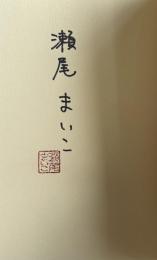 瀬尾まいこ